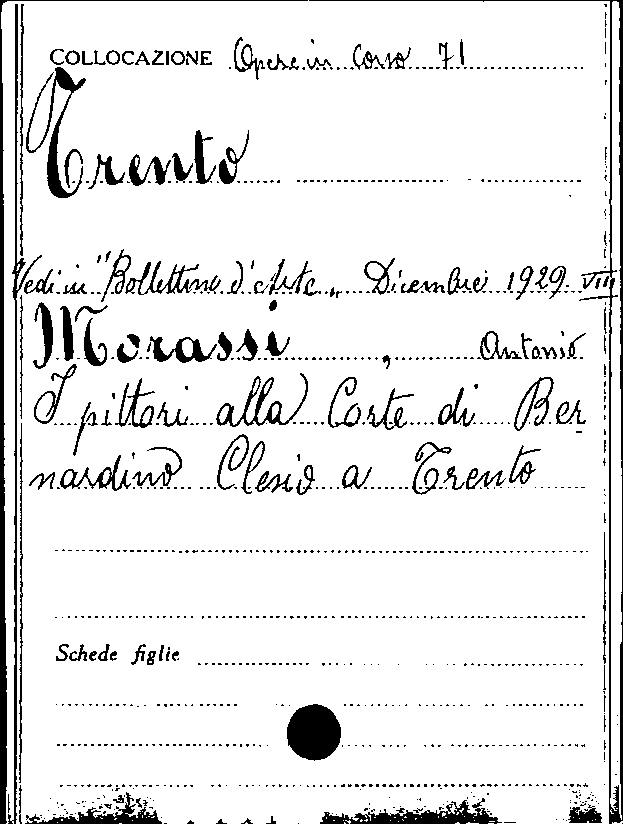 COLLOCAZIONE Opere in Corso 71
Trento
Vedi in "Bollettino d'Arte„ Dicembre 1929. VIII
Morassi, Antonio
I pittori alla Corte di Ber
nardino Clesio a Trento
Schede figlie